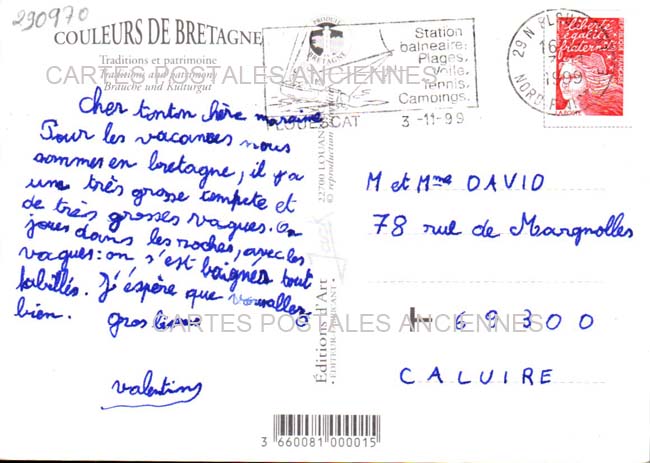 290970
COULEURS DE BRETAGNE
Traditions et patrimoine
Traditions and patrimony
Bräuche und Kulturgut
PRODUIT
BRETAGNE
Station
balnéaire.
Plages.
Voile.
Tennis.
Campings.
PLOUESCAT 3-11-99
29 N PLOU
16
1999
NORD-F
Liberté
égalité
fraternité
CARTES POSTALES ANCIENNES
Cher tonton chère marraine
Pour les vacances nous
sommes en bretagne, il y a
une très grosse tempete et
de très grosses vagues. on
joue dans les roches, avec les
vagues: on s'est baignés tout
habillés. J'éspère que vous allez
bien. gros bisous
valentin
Editions d'Art
EDITEUR FABRICANT
Jack
22700 LOUANNEC
© reproduction
M et Mme DAVID
78 rue de Margnolles
69300
CALUIRE
CARTES POSTALES ANCIENNES
3 660081 000015